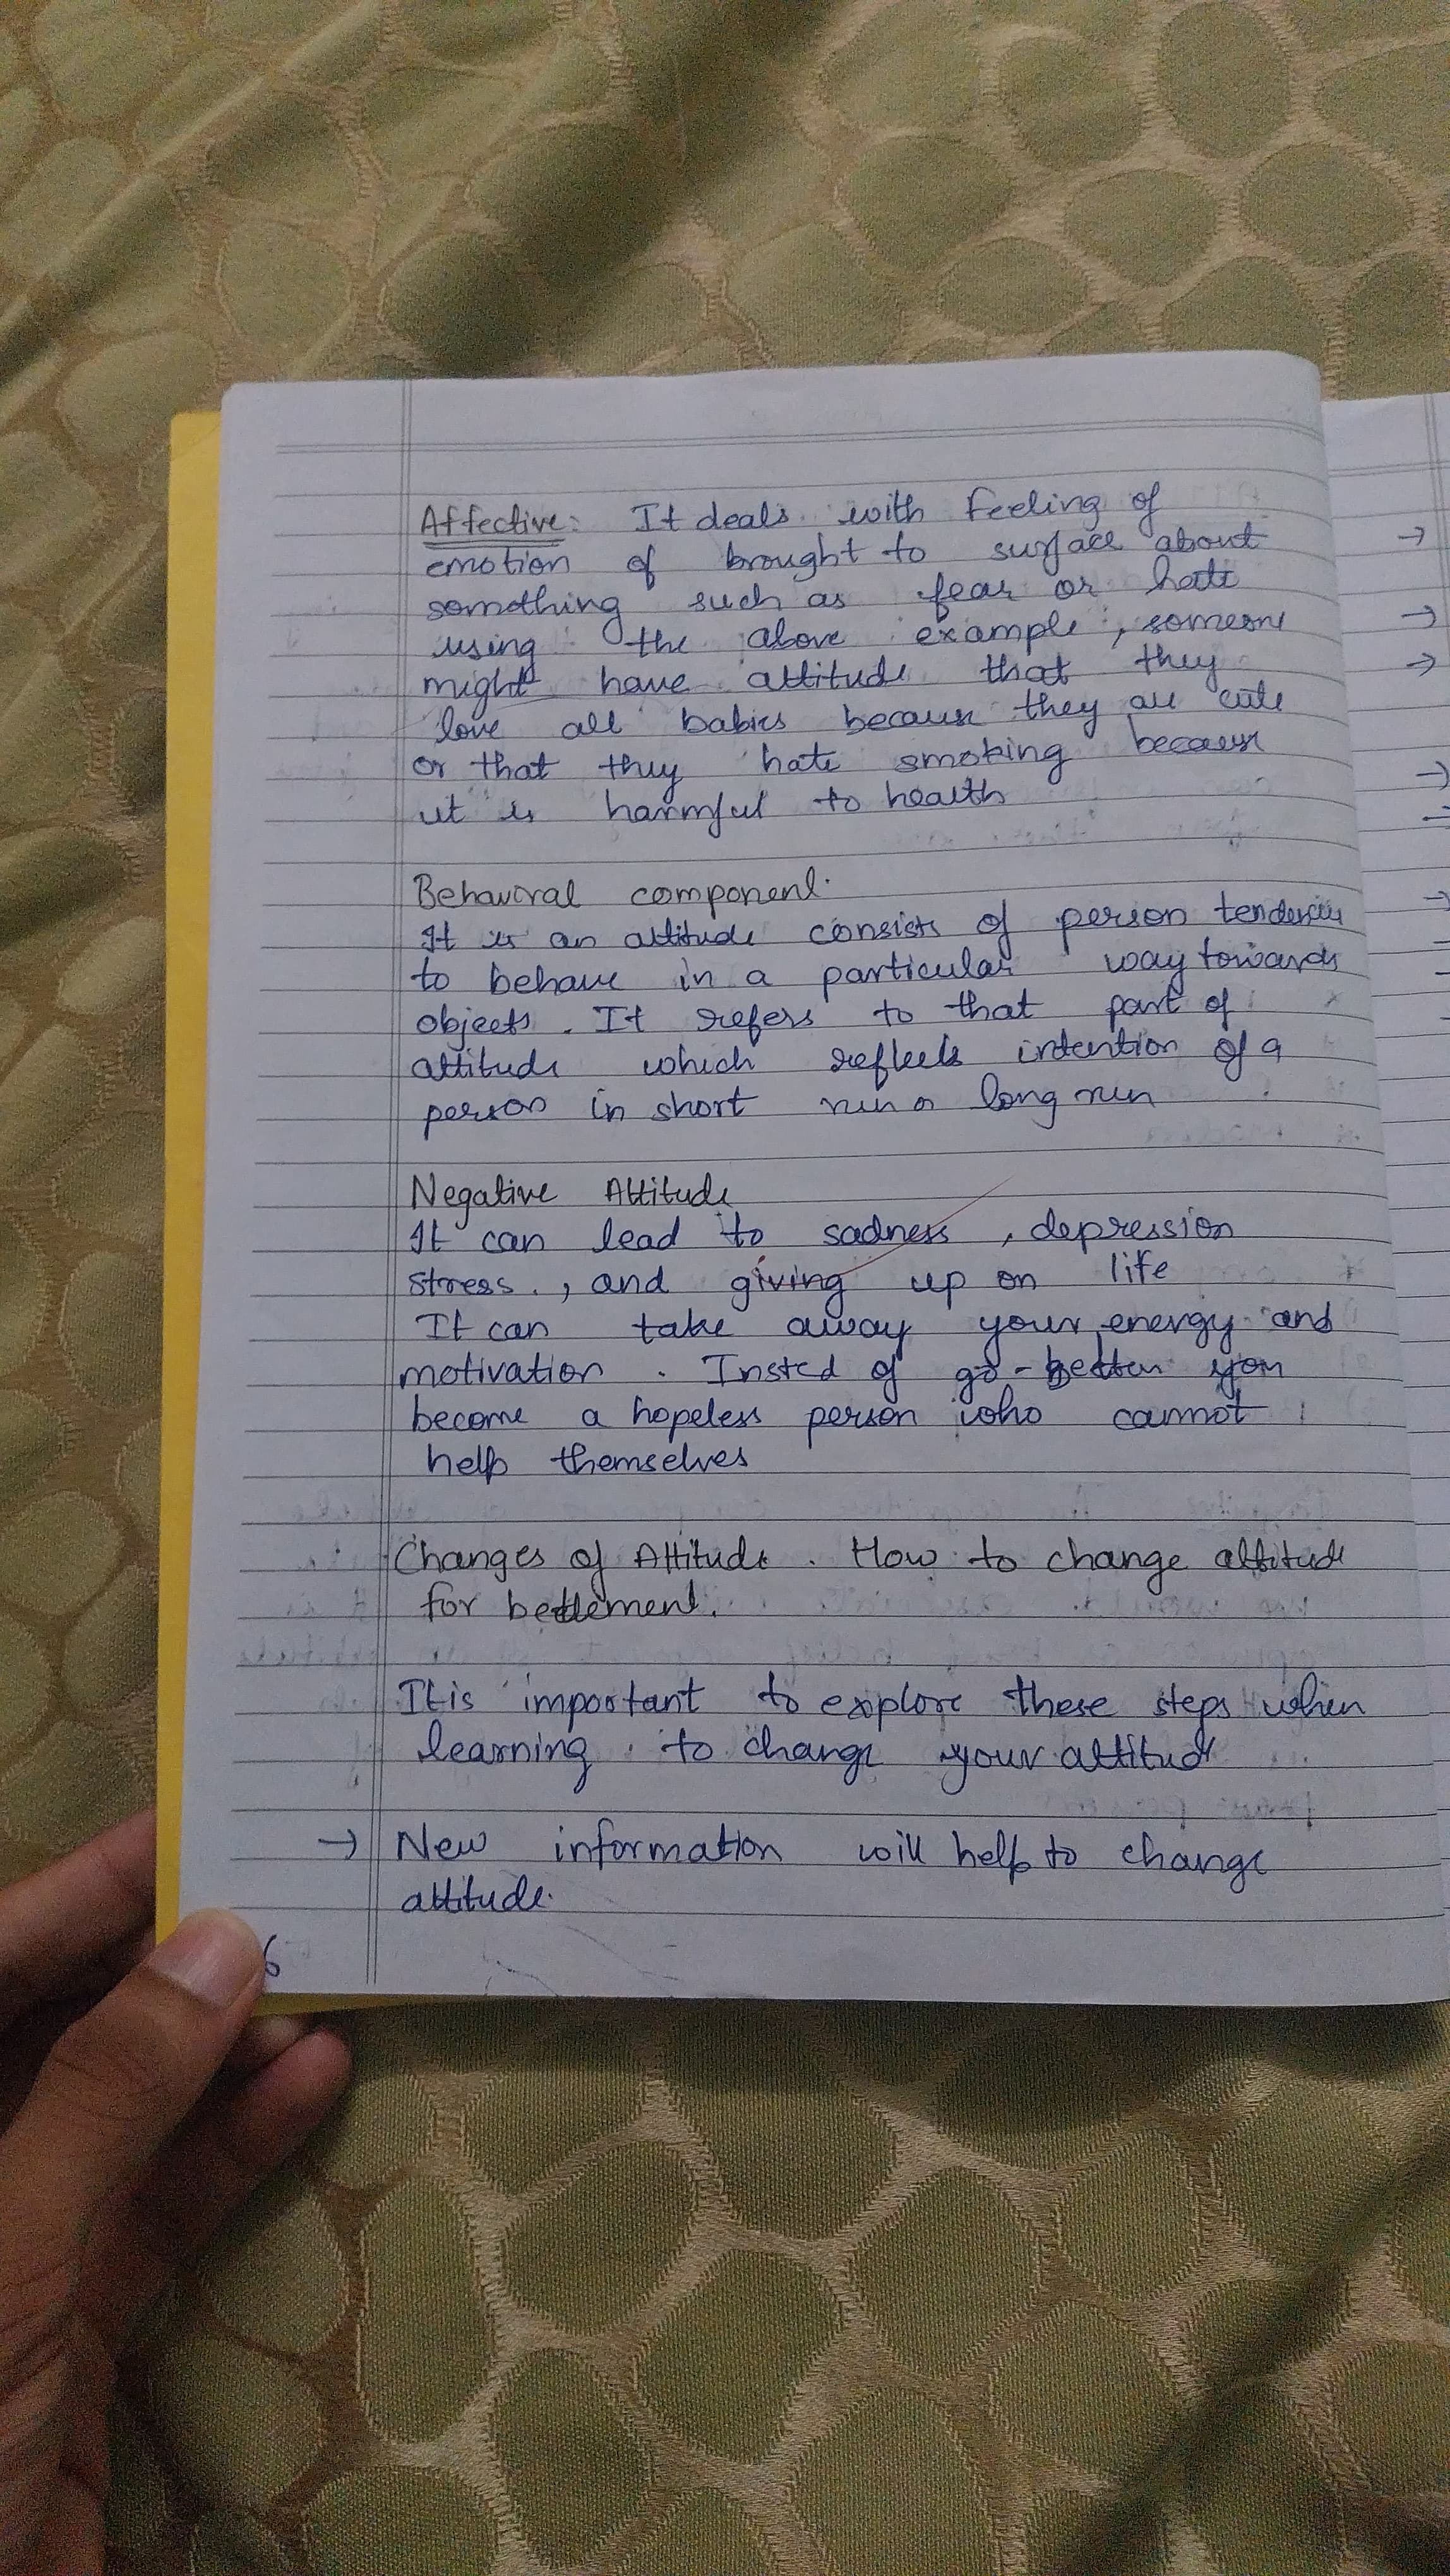 Affective: It deals with feeling of
emotion of brought to surface about
something such as fear or hate
using the above example, someone
might have attitude that they
love all babies because they are cute
or that they hate smoking because
it is harmful to health
Behavioral component.
It is an attitude consists of person tendencies
to behave in a particular way towards
objects. It refers to that part of
attitude which reflects intention of a
person in short run or long run
Negative Attitude
It can lead to sadness, depression
stress., and giving up on life
It can take away your energy and
motivation. Insted of go-getter you
become a hopeless person who cannot
help themselves
Changes of Attitude. How to change attitude
for bettement.
It is important to explore these steps when
learning to change your attitude
→ New information will help to change
attitude.
6